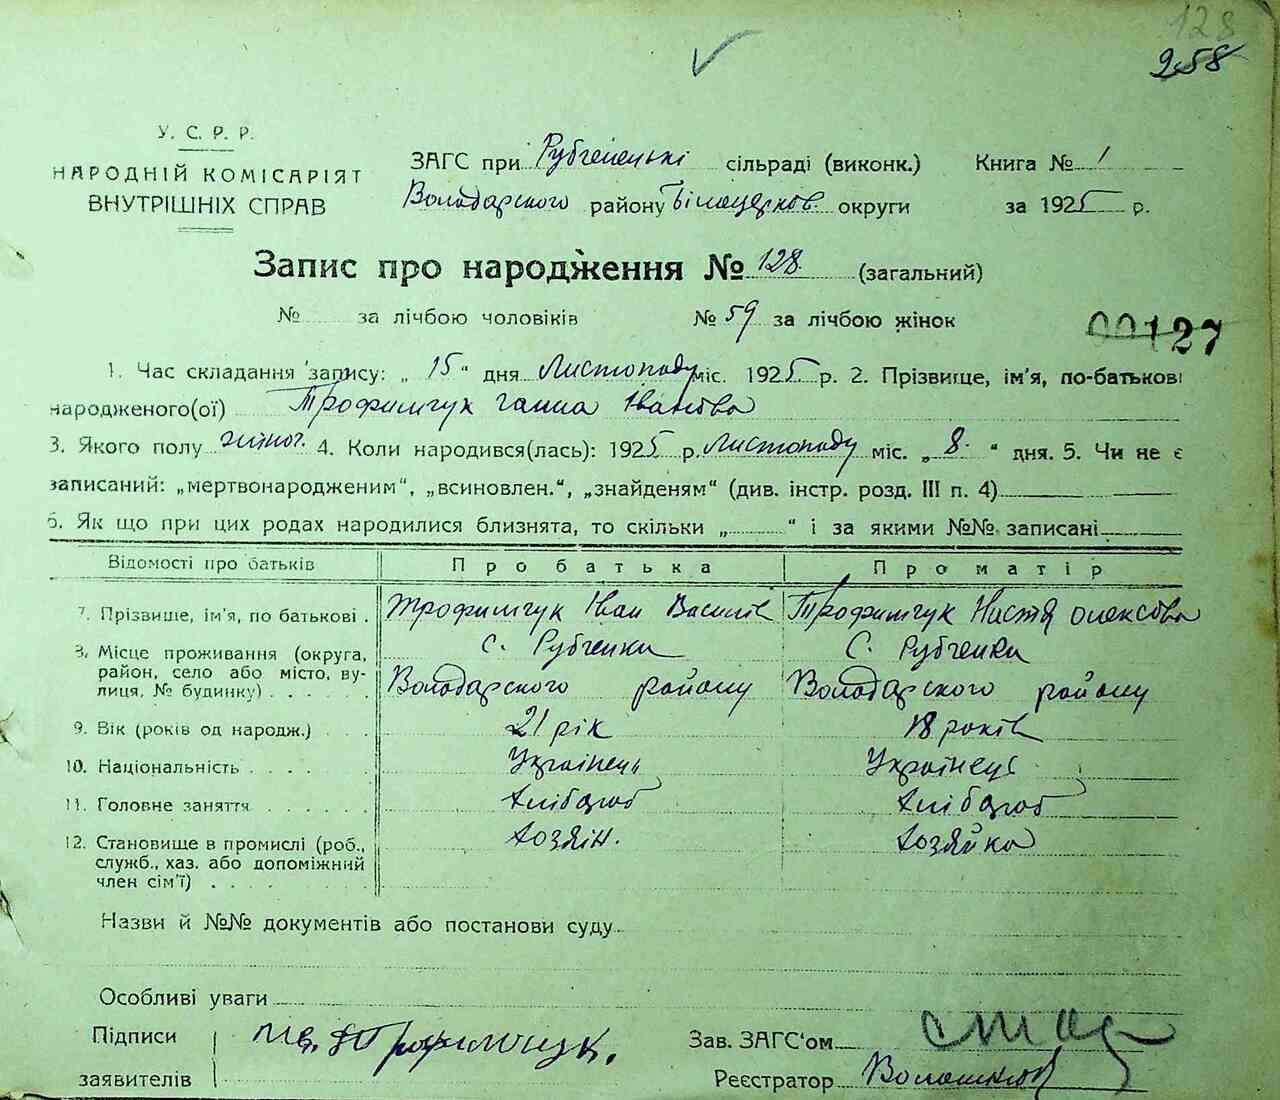 128
258
У. С. Р. Р.
НАРОДНІЙ КОМІСАРІЯТ
ВНУТРІШНІХ СПРАВ
ЗАГС при Рубченецькі сільраді (виконк.) Книга № 1
Володарского району Білоцерков. округи за 1925 р.
Запис про народження № 128. (загальний)
№ за лічбою чоловіків № 59 за лічбою жінок
00127
1. Час складання запису: „ 15 “ дня Листопаду міс. 1925 р. 2. Прізвище, ім'я, по-батькові
народженого(ої) Трофимчук Ганна Іванова
3. Якого полу жіноч. 4. Коли народився(лась): 1925 р. Листопаду міс. „ 8. “ дня. 5. Чи не є
записаний: „мертвонародженим“, „всиновлен.“, „знайденям“ (див. інстр. розд. III п. 4)
6. Як що при цих родах народилися близнята, то скільки „ “ і за якими №№ записані
Відомості про батьків Про батька Про матір
7. Прізвище, ім'я, по батькові . Трофимчук Іван Василів Трофимчук Настя Олексова
8. Місце проживання (округа, с. Рубченки с. Рубченки
район, село або місто, ву-
лиця, № будинку) . . . . . Володарского району Володарского району
9. Вік (років од народж.) . . . 21 рік 18 років
10. Національність . . . . . Українець Українець
11. Головне заняття . . . . . Хлібороб Хлібороб
12. Становище в промислі (роб., Хозяін. Хозяйка
служб., хаз. або допоміжний
член сім'ї) . . . . . . .
Назви й №№ документів або постанови суду
Особливі уваги
Підписи Трофимчук. Зав. ЗАГС'ом
заявителів Реєстратор